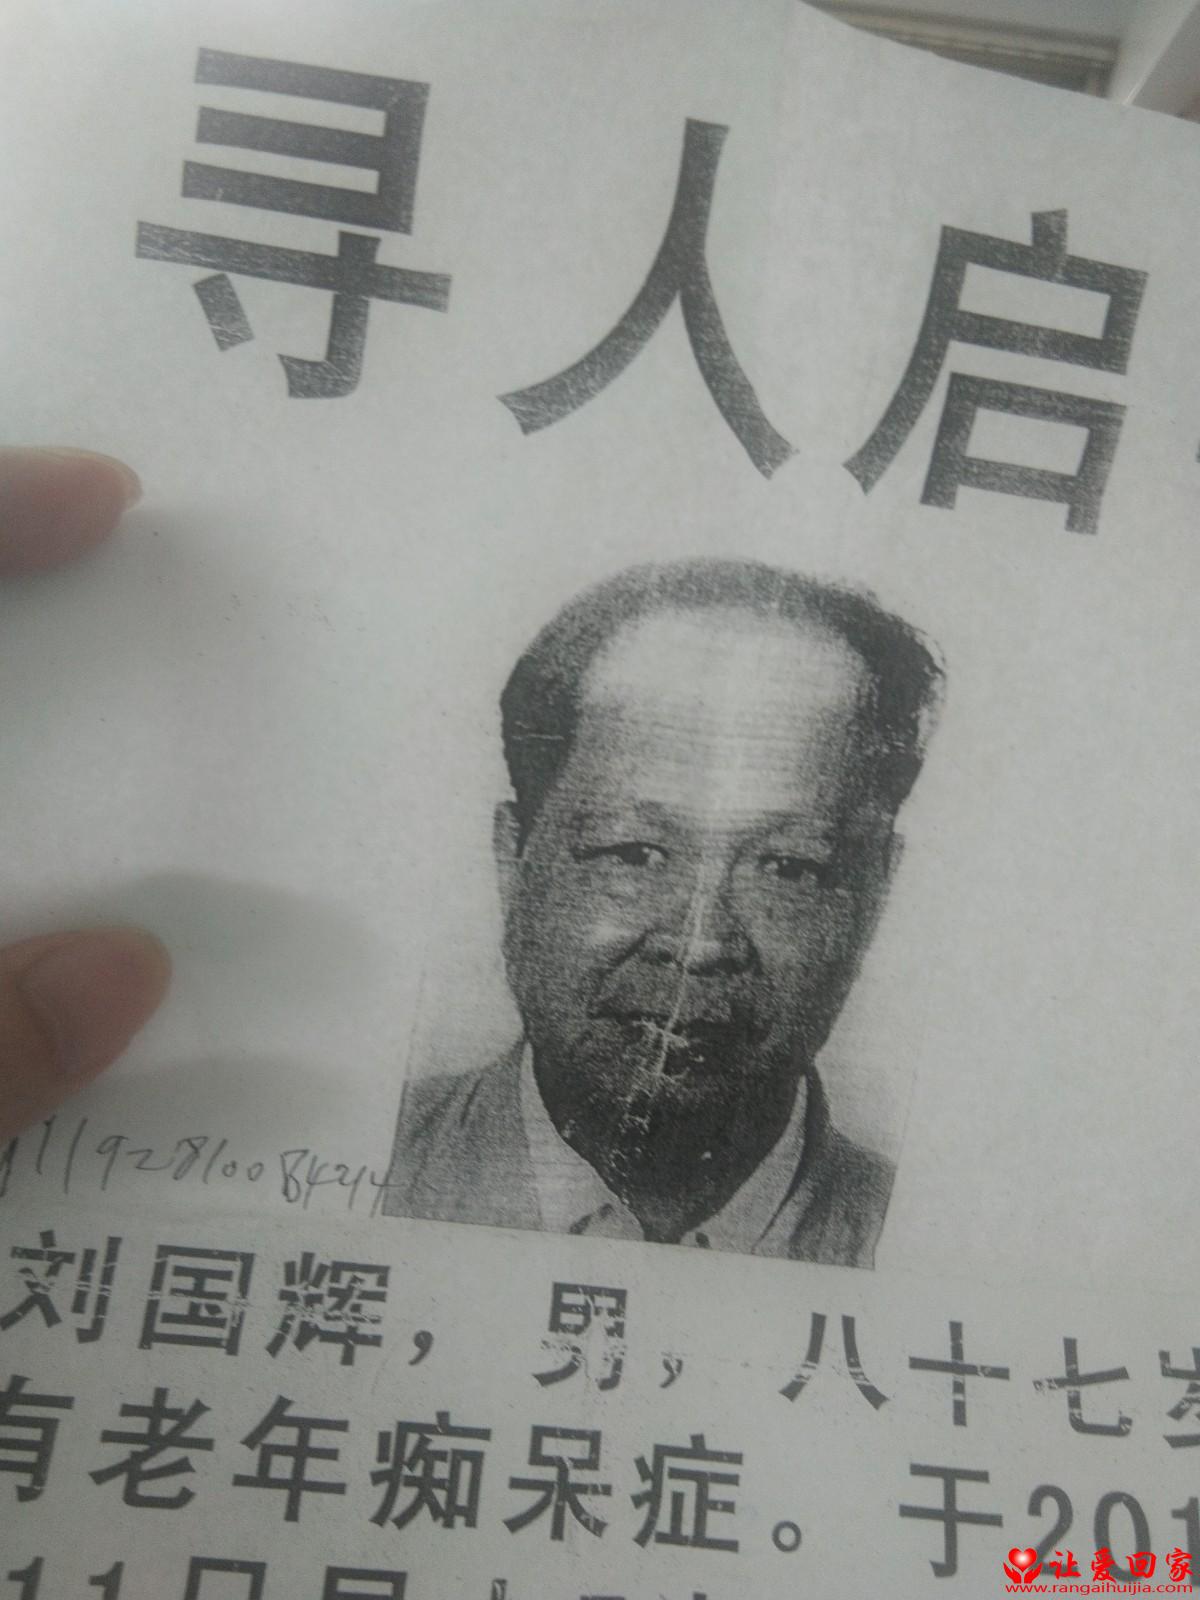 寻人启
刘国辉，男，八十七岁
有老年痴呆症。于201
11日早
让爱回家
www.rangaihuijia.com